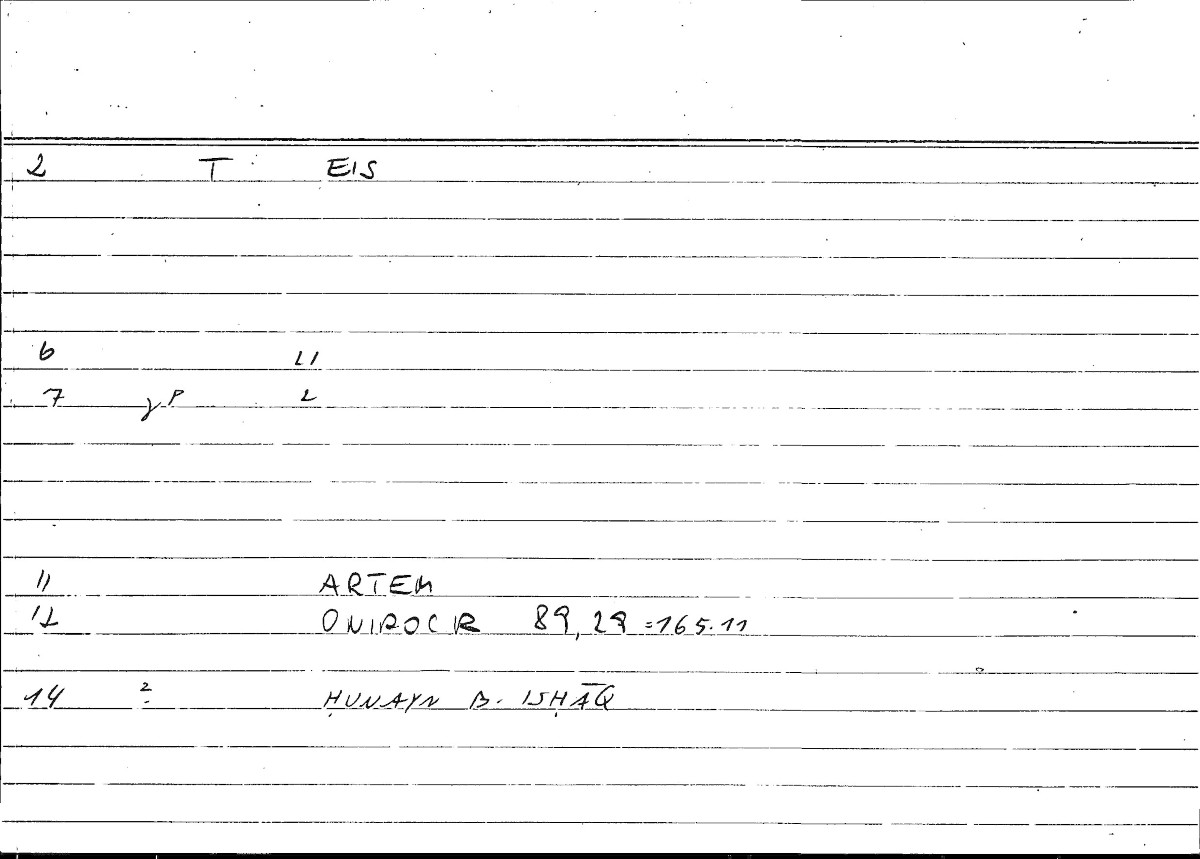 2 T EIS
6 LI
7 γP 2
11 ARTEM
12 ONIROCR 89, 29 = 165.11
14 2 ḤUNAYN B. ISḤĀQ